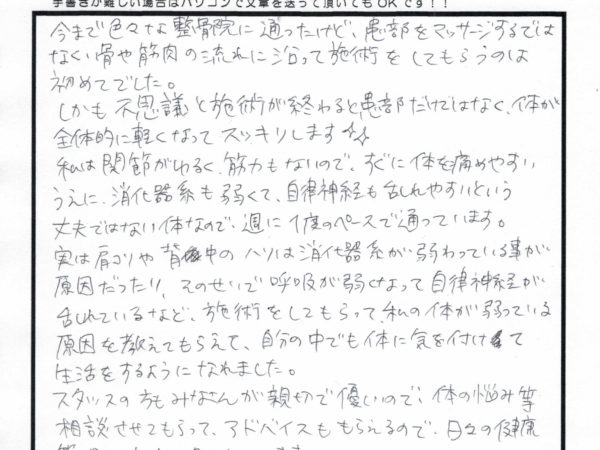 手書きが難しい場合はパソコンで文章を送って頂いてもOKです！！
今まで色々な整骨院に通ったけど、患部をマッサージするでは
なく、骨や筋肉の流れに沿って施術をしてもらうのは
初めてでした。
しかも不思議と施術が終わると患部だけではなく、体が
全体的に軽くなってスッキリします
私は関節がわるく、筋力もないので、すぐに体を痛めやすい
うえに、消化器系も弱くて、自律神経も乱れやすいという
丈夫ではない体なので、週に1度のペースで通っています。
実は肩こりや背中のハリは消化器系が弱わっている事が
原因だったり、そのせいで呼吸が弱くなって自律神経が
乱れているなど、施術をしてもらって私の体が弱っている
原因を教えてもらえて、自分の中でも体に気を付けて
生活をするようになれました。
スタッフの方もみなさんが親切で優しいので、体の悩み等
相談させてもらって、アドバイスももらえるので、日々の健康